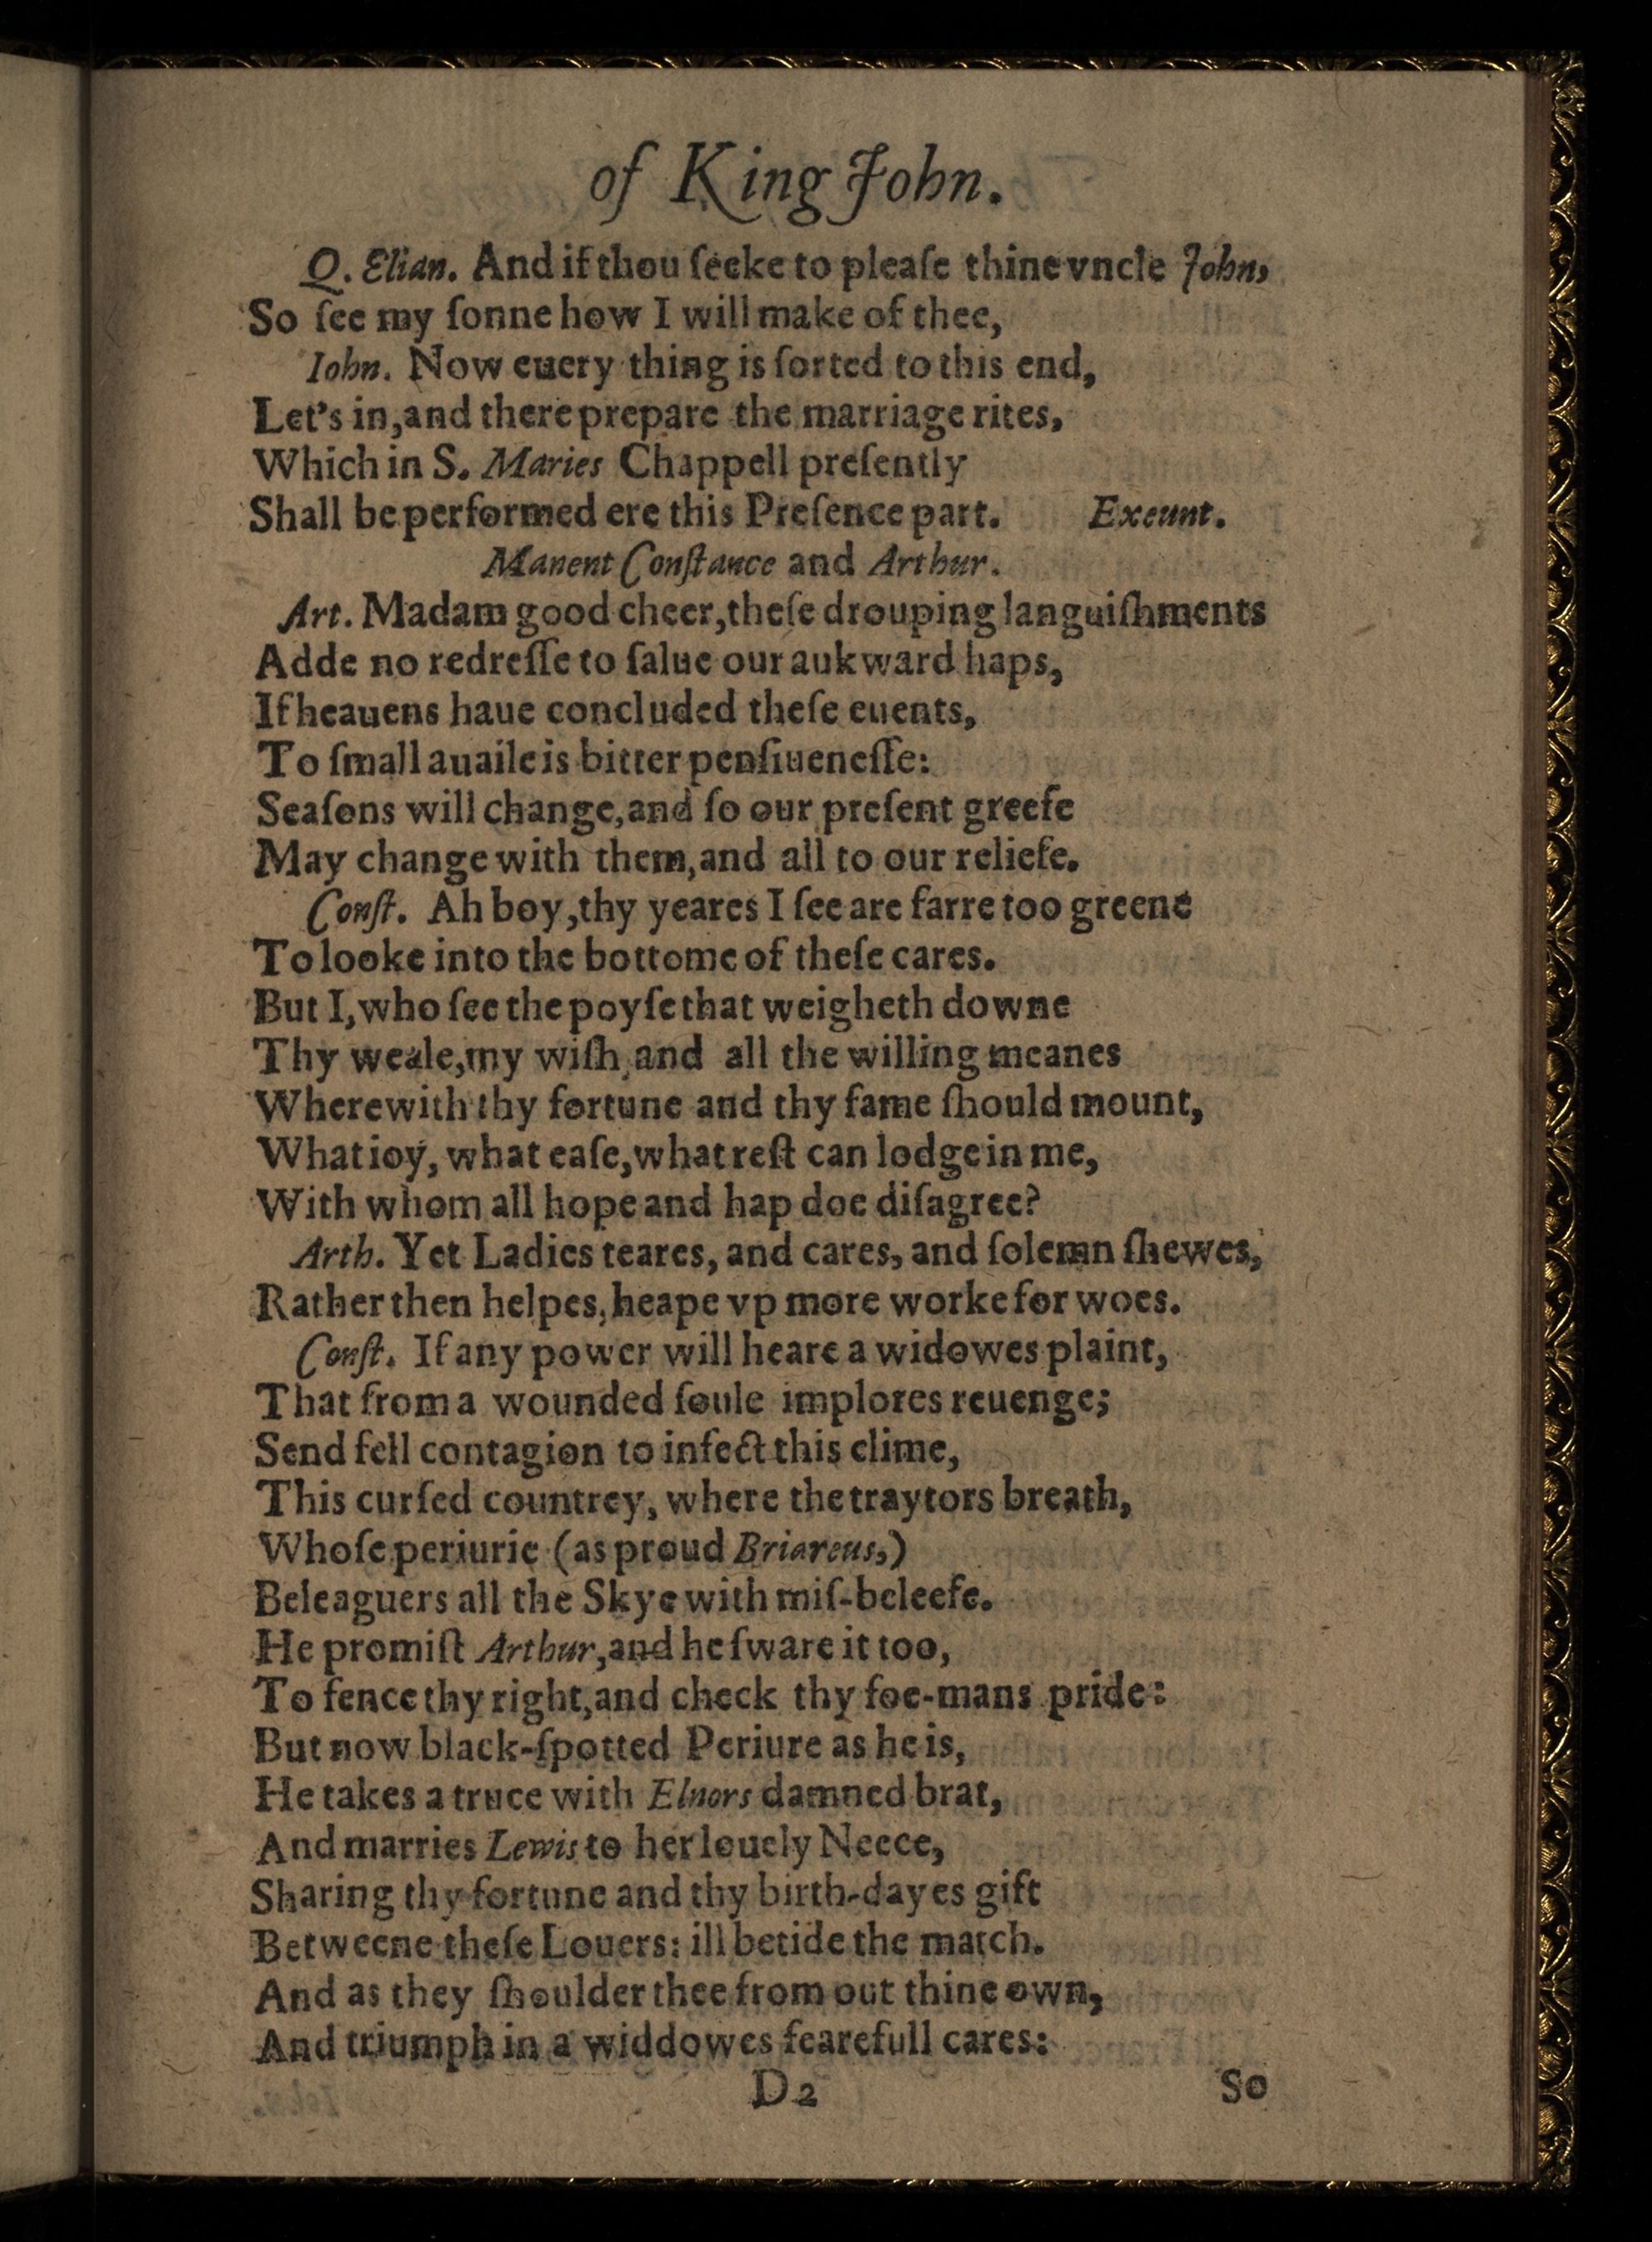 of King John.
Q. Elian. And if thou ſeeke to pleaſe thine vncle John,
So ſee my ſonne how I will make of thee,
Iohn. Now euery thing is ſorted to this end,
Let's in, and there prepare the marriage rites,
Which in S. Maries Chappell preſently
Shall be performed ere this Preſence part. Exeunt.
Manent Conſtance and Arthur.
Art. Madam good cheer, theſe drouping languiſhments
Adde no redreſſe to ſalue our aukward haps,
If heauens haue concluded theſe euents,
To ſmall auaile is bitter penſiueneſſe:
Seaſons will change, and ſo our preſent greefe
May change with them, and all to our reliefe.
Conſt. Ah boy, thy yeares I ſee are farre too greene
To looke into the bottome of theſe cares.
But I, who ſee the poyſe that weigheth downe
Thy weale, my wiſh, and all the willing meanes
Wherewith thy fortune and thy fame ſhould mount,
What ioy, what eaſe, what reſt can lodge in me,
With whom all hope and hap doe diſagree?
Arth. Yet Ladies teares, and cares, and ſolemn ſhewes,
Rather then helpes, heape vp more worke for woes.
Conſt. If any power will heare a widowes plaint,
That from a wounded ſoule implores reuenge;
Send fell contagion to infect this clime,
This curſed countrey, where the traytors breath,
Whoſe periurie (as proud Briareus,)
Beleaguers all the Skye with miſ-beleefe.
He promiſt Arthur, and he ſware it too,
To fence thy right, and check thy foe-mans pride:
But now black-ſpotted Periure as he is,
He takes a truce with Elnors damned brat,
And marries Lewis to her louely Neece,
Sharing thy fortune and thy birth-dayes gift
Betweene theſe Louers: ill betide the match.
And as they ſhoulder thee from out thine own,
And triumph in a widdowes fearefull cares:
D2 So